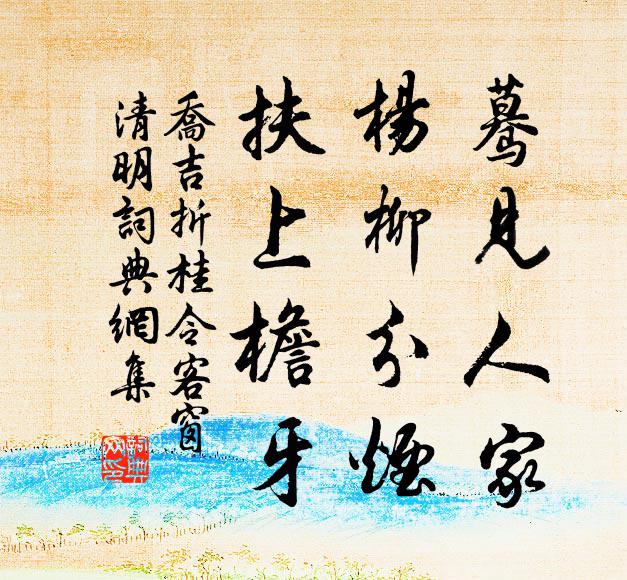 驀見人家
楊柳分煙
扶上檐牙
喬吉折桂令客窗
清明詞典網集